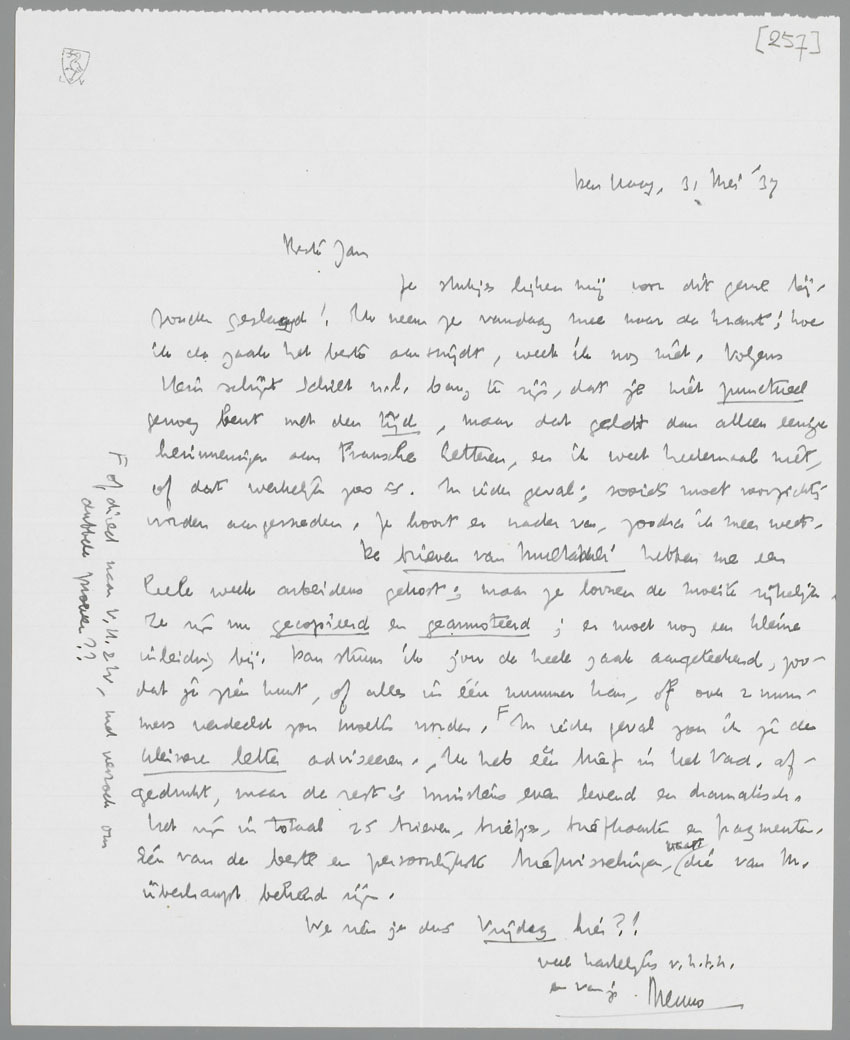 [257]
Den Haag, 31 Mei '37
Beste Jan
Je stukjes lijken mij voor dit genre bij-
zonder geslaagd! Ik neem ze vandaag mee naar de krant; hoe
ik de zaak het beste aansnijdt, weet ik nog niet. Volgens
Hein schijnt Schilt n.l. bang te zijn, dat je niet punctueel
genoeg bent met den tijd, maar dat geldt dan alleen eenige
herinneringen aan Fransche letteren, en ik weet heelemaal niet,
of dat werkelijk zoo is. In ieder geval; zooiets moet voorzichtig
worden aangesneden. Je hoort er nader van, zoodra ik meer weet.
De brieven van Multatuli hebben me een
heele week arbeidens gekost; maar ze loonen de moeite rijkelijk.
Ze zijn nu gecopieerd en geannoteerd; er moet nog een kleine
inleiding bij. Dan stuur ik jou de heele zaak aangeteekend, zoo-
dat jij zien kunt, of alles in één nummer kan, of over 2 num-
mers verdeeld zou moeten worden. F In ieder geval zou ik je de
kleinere letter adviseeren. Ik heb één brief in het Vad. af-
gedrukt, maar de rest is minstens even levend en dramatisch.
Het zijn in totaal 25 brieven, briefjes, briefkaarten en fragmenten.
Eén van de beste en persoonlijkste briefwisselingen, (die van M.
überhaupt bekend zijn.
We zien je dus Vrijdag hier?!
veel hartelijks v.h.t.h.
en van je Menno
F of direct naar V.H. & W., met verzoek om
dubbele proeven??